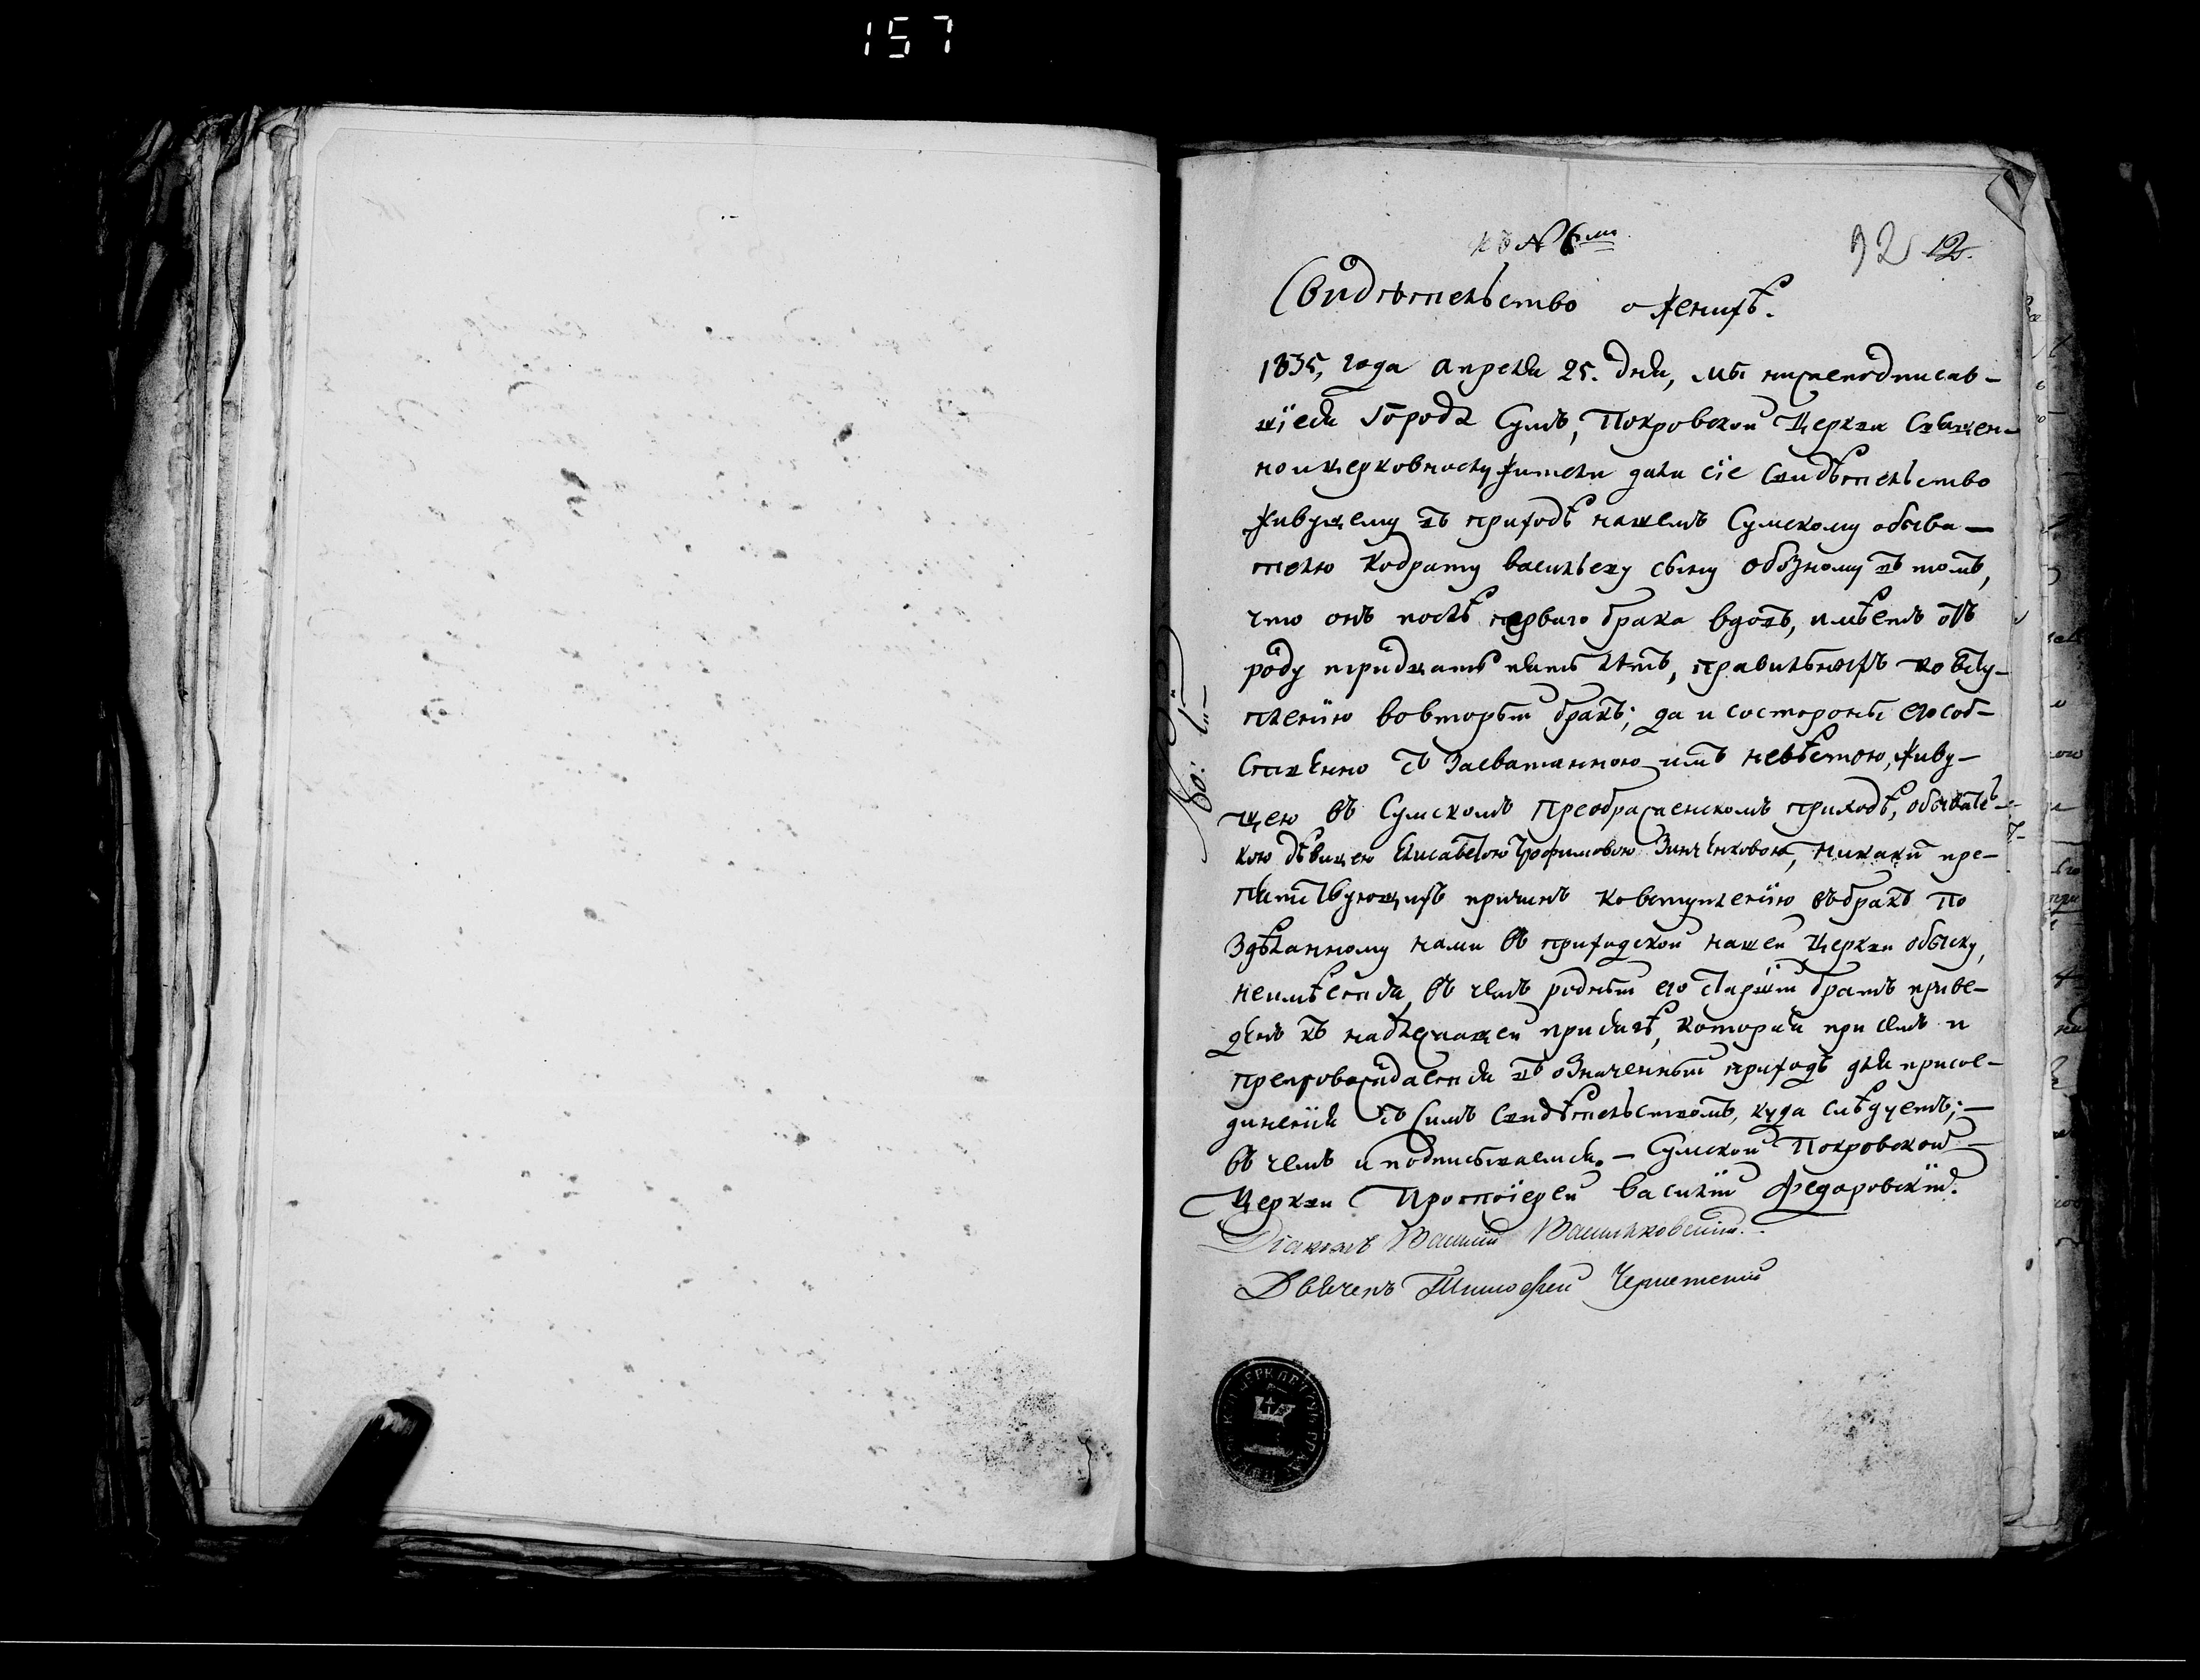 157
къ № 6му
92 12.
Свидѣтельство о женихѣ.
1835, года апреля 25. дня, мы нижеподписав-
шіеся города Сумъ, Покровской Церкви Священ-
но и церковнослужители дали сіе свидѣтельство
живущему въ приходѣ нашемъ Сумскому обыва-
телю Кодрату васильеву сыну Обозному въ томъ,
что онъ послѣ перваго брака вдовъ, имѣетъ отъ
роду тридцать пять лѣтъ, правильной къ всту-
пленію во вторый бракъ; да и состороны его соб-
ственно съ засватанною имъ невѣстою, живу-
щею въ Сумскомъ Преображенскомъ приходѣ, обыватель-
кою дѣвицею Елисаветою Трофимовою Зинченковою, никакихъ пре-
пятствующихъ причинъ ковступленію въ бракъ по
здѣланному нами въ приходской нашей Церкви обыску,
неимѣется, въ чемъ родный его старшій братъ приве-
денъ къ надлежащей присягѣ, который при семъ и
препровождается въ означенный приходъ для присое-
диненія съ симъ свидѣтельствомъ, куда слѣдуетъ; -
въ чемъ и подписываемся. - Сумской Покровской -
Церкви Протоіерей Василій Федоровскій.
Діаконъ Василій Васильковскій.
Дьячекъ Тимофей